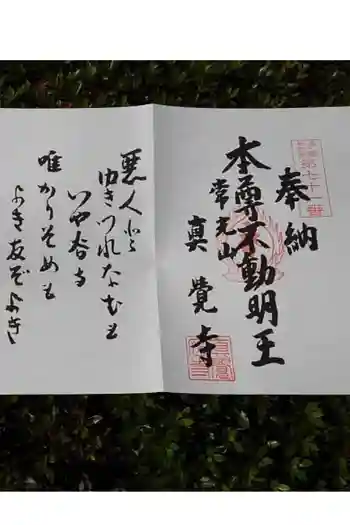 第七十一番
奉納
本尊不動明王
常光山
眞覺寺
悪人と
ゆきつれなむも
いや谷寺
唯かりそめも
よき友ぞよき